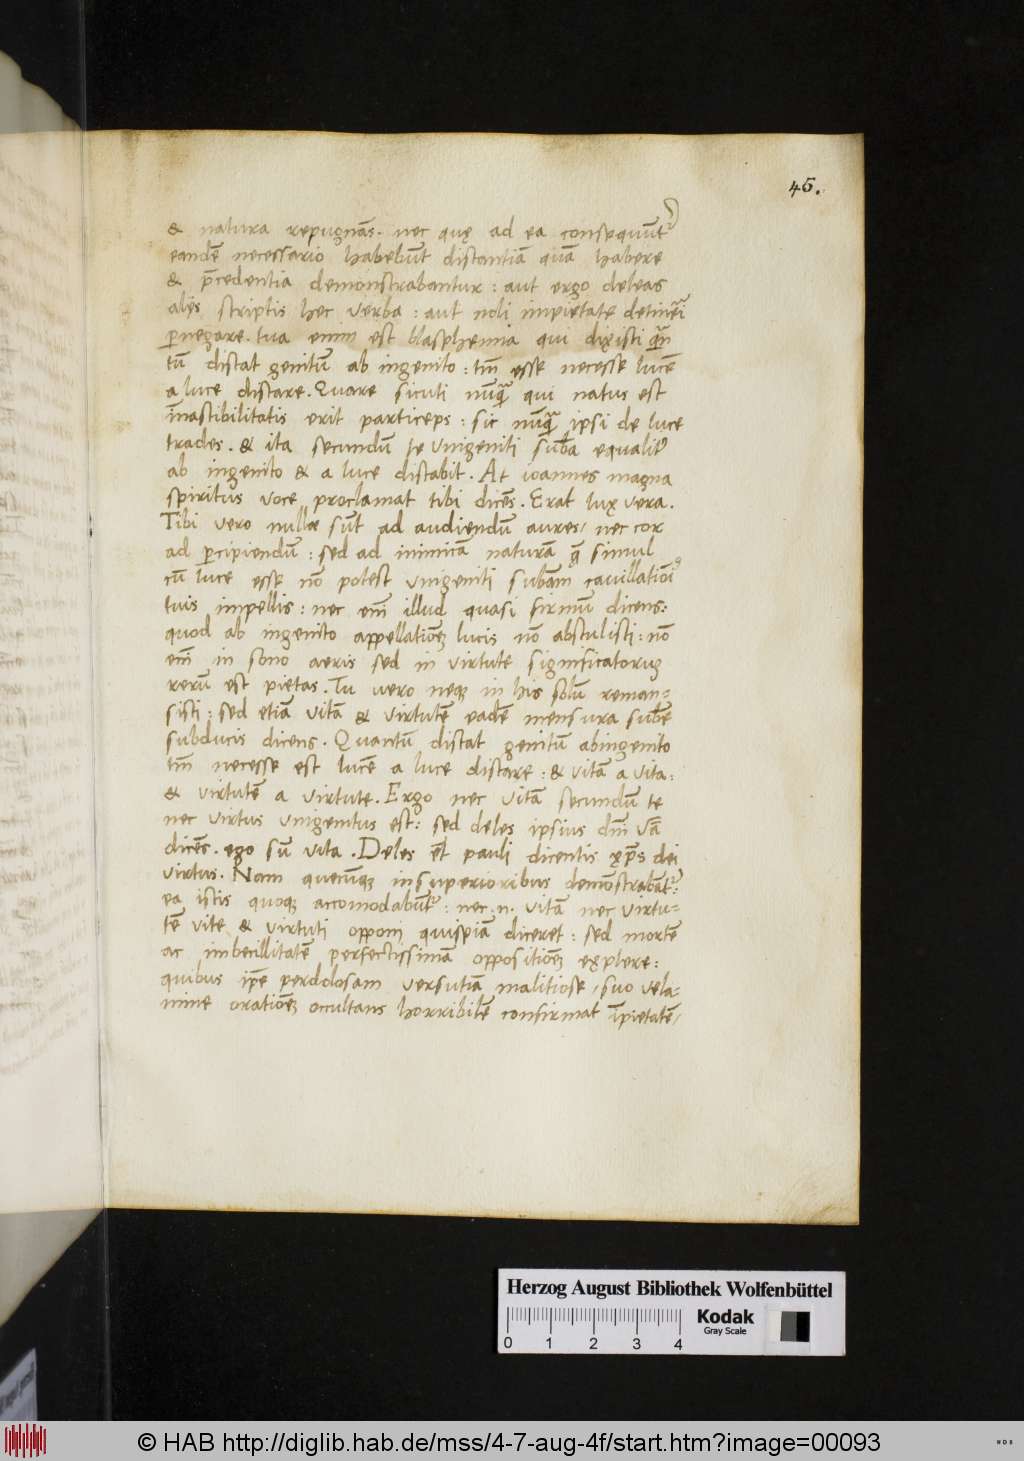 45.
& natura repugnās. nec quę ad ea consequūt᷑
eandē necessario habebūt distantiā quā habere
& p̄cedentia demonstrabantur : aut ergo deleas
alijs scriptis hec verba : aut noli impietatē
ꝑnegare. tua enim est blasphemia qui dixisti
tū distat genitū ab ingenito : tm̄ esse necesse lucē
a luce distare. Quare sicuti nūq̄ qui natus est
erit particeps : sic nūq̄ ipsi de luce
trades. & ita secundū te Unigeniti sub̄a
ab ingenito & a luce distabit. At ioannes magna
spiritus voce proclamat tibi dicēs. Erat lux vera.
Tibi vero nullæ sūt ad audiendū aures, nec cor
ad ꝑcipiendū : sed ad inimicā naturā q̄ simul
cū luce esse nō potest unigeniti subām
tuis impellis : nec em̄ illud quasi firmū dicens:
quod ab ingenito appellationē lucis nō abstulisti : nō
em̄ in sono aeris sed in virtute significatoruꝫ
rerū est pietas. Tu uero neqꝫ in his solū reman-
sisti : sed etiā vitā & virtutē eadē mensura
subducis dicens. Quantū distat genitū abingenito
tm̄ necesse est lucē a luce distare : & vitā a vita :
& virtutē a virtute. Ergo nec vitā secundū te
nec virtus unigenitus est : sed deles ipsius dm̄
dicēs. ego sū vita. Deles et̄ pauli dicentis xp̄s dei
virtus. Nam quecūqꝫ insuperioribus demōstrabāt᷑ :
ea istis quoqꝫ accomodabūt᷑ : nec .n. vitā nec virtu-
tē vite & virtuti opponi quispiā diceret : sed mortē
ac imbecillitatē perfectissimā oppositionē explere :
quibus ip̄e perdolosam versutiā malitiose, suo vela-
mine orationē occultans horribilē confirmat īpietatē,
Herzog August Bibliothek Wolfenbüttel
0 1 2 3 4
Kodak
Gray Scale
© HAB http://diglib.hab.de/mss/4-7-aug-4f/start.htm?image=00093